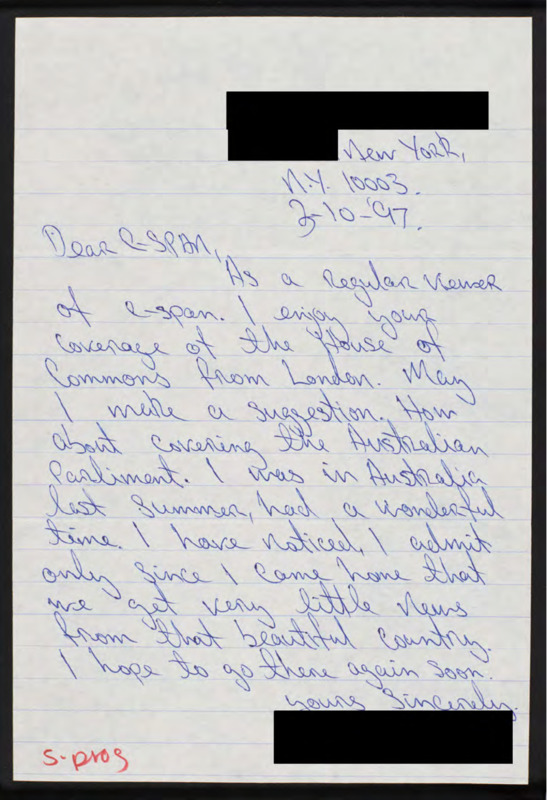 New York,
N.Y. 10003.
3-10-'97.
Dear C-SPAN,
As a regular viewer
of C-span. I enjoy your
coverage of the House of
Commons from London. May
I make a suggestion. How
about covering the Australian
Parliment. I was in Australia
last summer, had a wonderful
time. I have noticed, I admit
only since I came home that
we get very little news
from that beautiful country.
I hope to go there again soon.
yours Sincerely.
s-prog